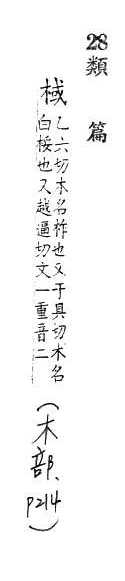 28類篇
棫乙六切木名柞也又于具切木名
白桵也又越逼切文一重音二
(木部、p214)